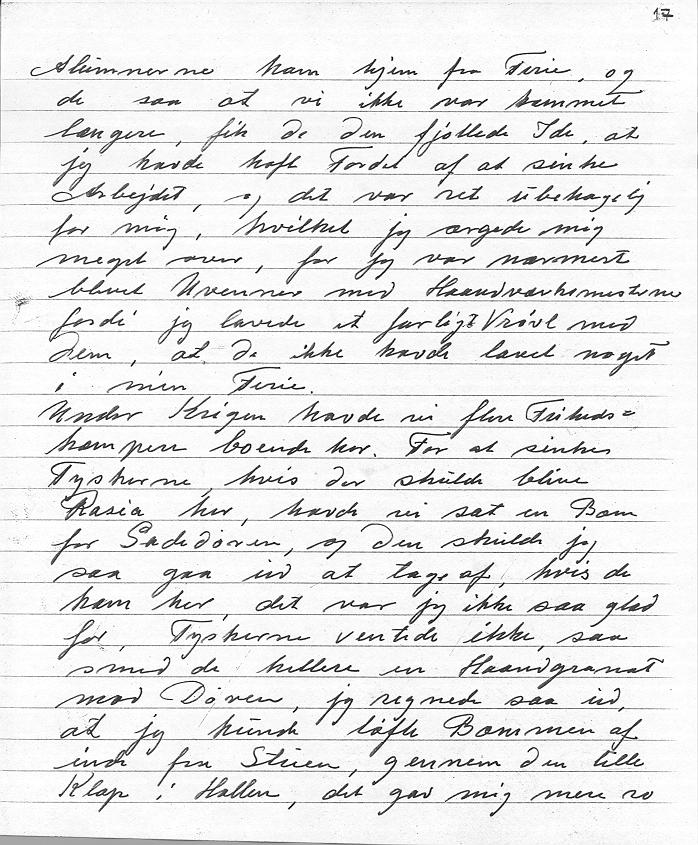 17
Alumnerne kom hjem fra Ferie, og
de saa at vi ikke var kommet
længere, fik de den fjollede Ide, at
jeg havde haft Fordel af at sinke
Arbejdet, og det var ret ubehagelig
for mig, hvilket jeg ærgede mig
meget over, for jeg var nærmest
blevet Uvenner med Haandværksmesterne
fordi jeg lavede et farligt Vrøvl med
Dem, at de ikke havde lavet noget
i min Ferie.
Under Krigen havde vi flere Friheds=
kæmpere boende her. For at sinke
Tyskerne, hvis der skulde blive
Rasia her, havde vi sat en Bom
for Gadedøren, og den skulde jeg
saa gaa ud at tage af, hvis de
kom her, det var jeg ikke saa glad
for, Tyskerne ventede ikke, saa
smed de hellere en Haandgranat
mod Døren, jeg regnede saa ud,
at jeg kunde løfte Bommen af
inde fra Stuen, gennem den lille
Klap i Hallen, det gav mig mere ro